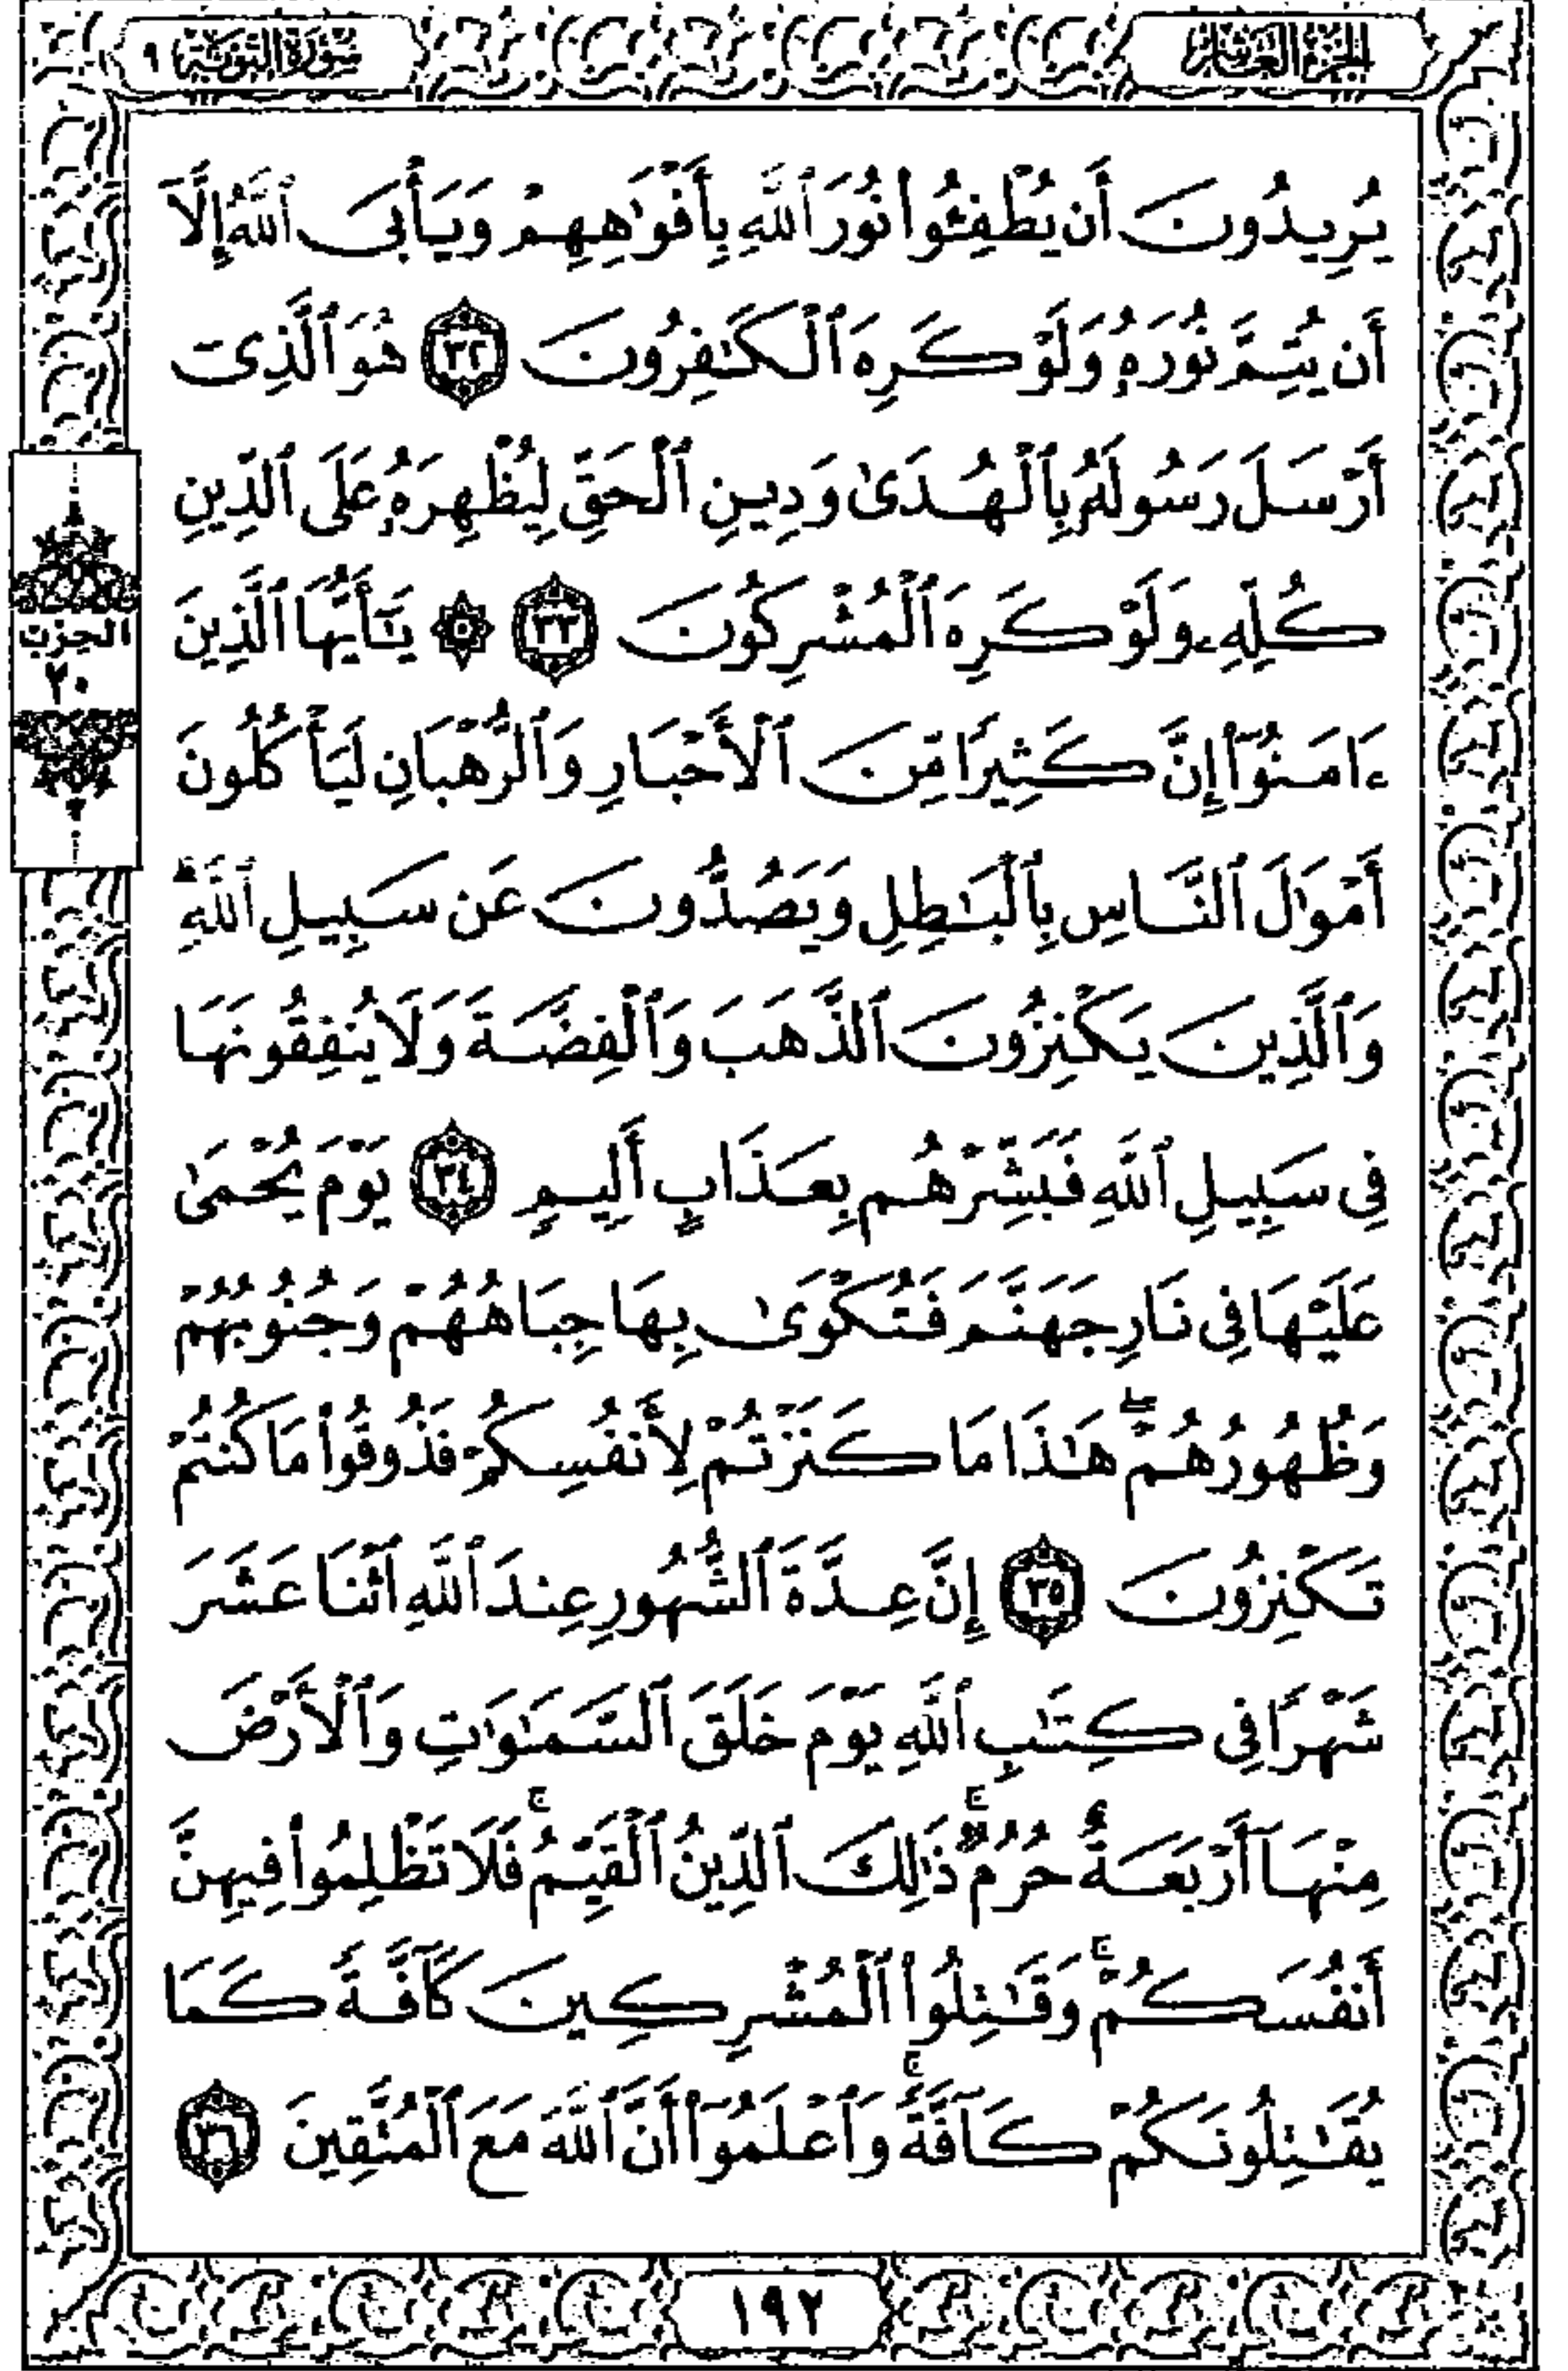 الجزء العاشر
سورة التوبة ٩
يُرِيدُونَ أَن يُطْفِـُٔوا۟ نُورَ ٱللَّهِ بِأَفْوَٰهِهِمْ وَيَأْبَى ٱللَّهُ إِلَّآ
أَن يُتِمَّ نُورَهُۥ وَلَوْ كَرِهَ ٱلْكَٰفِرُونَ ٣٢ هُوَ ٱلَّذِىٓ
أَرْسَلَ رَسُولَهُۥ بِٱلْهُدَىٰ وَدِينِ ٱلْحَقِّ لِيُظْهِرَهُۥ عَلَى ٱلدِّينِ
كُلِّهِۦ وَلَوْ كَرِهَ ٱلْمُشْرِكُونَ ٣٣ ۞ يَٰٓأَيُّهَا ٱلَّذِينَ
ءَامَنُوٓا۟ إِنَّ كَثِيرًا مِّنَ ٱلْأَحْبَارِ وَٱلرُّهْبَانِ لَيَأْكُلُونَ
أَمْوَٰلَ ٱلنَّاسِ بِٱلْبَٰطِلِ وَيَصُدُّونَ عَن سَبِيلِ ٱللَّهِ ۗ
وَٱلَّذِينَ يَكْنِزُونَ ٱلذَّهَبَ وَٱلْفِضَّةَ وَلَا يُنفِقُونَهَا
فِى سَبِيلِ ٱللَّهِ فَبَشِّرْهُم بِعَذَابٍ أَلِيمٍ ٣٤ يَوْمَ يُحْمَىٰ
عَلَيْهَا فِى نَارِ جَهَنَّمَ فَتُكْوَىٰ بِهَا جِبَاهُهُمْ وَجُنُوبُهُمْ
وَظُهُورُهُمْ ۖ هَٰذَا مَا كَنَزْتُمْ لِأَنفُسِكُمْ فَذُوقُوا۟ مَا كُنتُمْ
تَكْنِزُونَ ٣٥ إِنَّ عِدَّةَ ٱلشُّهُورِ عِندَ ٱللَّهِ ٱثْنَا عَشَرَ
شَهْرًا فِى كِتَٰبِ ٱللَّهِ يَوْمَ خَلَقَ ٱلسَّمَٰوَٰتِ وَٱلْأَرْضَ
مِنْهَآ أَرْبَعَةٌ حُرُمٌ ۚ ذَٰلِكَ ٱلدِّينُ ٱلْقَيِّمُ ۚ فَلَا تَظْلِمُوا۟ فِيهِنَّ
أَنفُسَكُمْ ۚ وَقَٰتِلُوا۟ ٱلْمُشْرِكِينَ كَآفَّةً كَمَا
يُقَٰتِلُونَكُمْ كَآفَّةً ۚ وَٱعْلَمُوٓا۟ أَنَّ ٱللَّهَ مَعَ ٱلْمُتَّقِينَ ٣٦
الحزب
٢٠
١٩٢